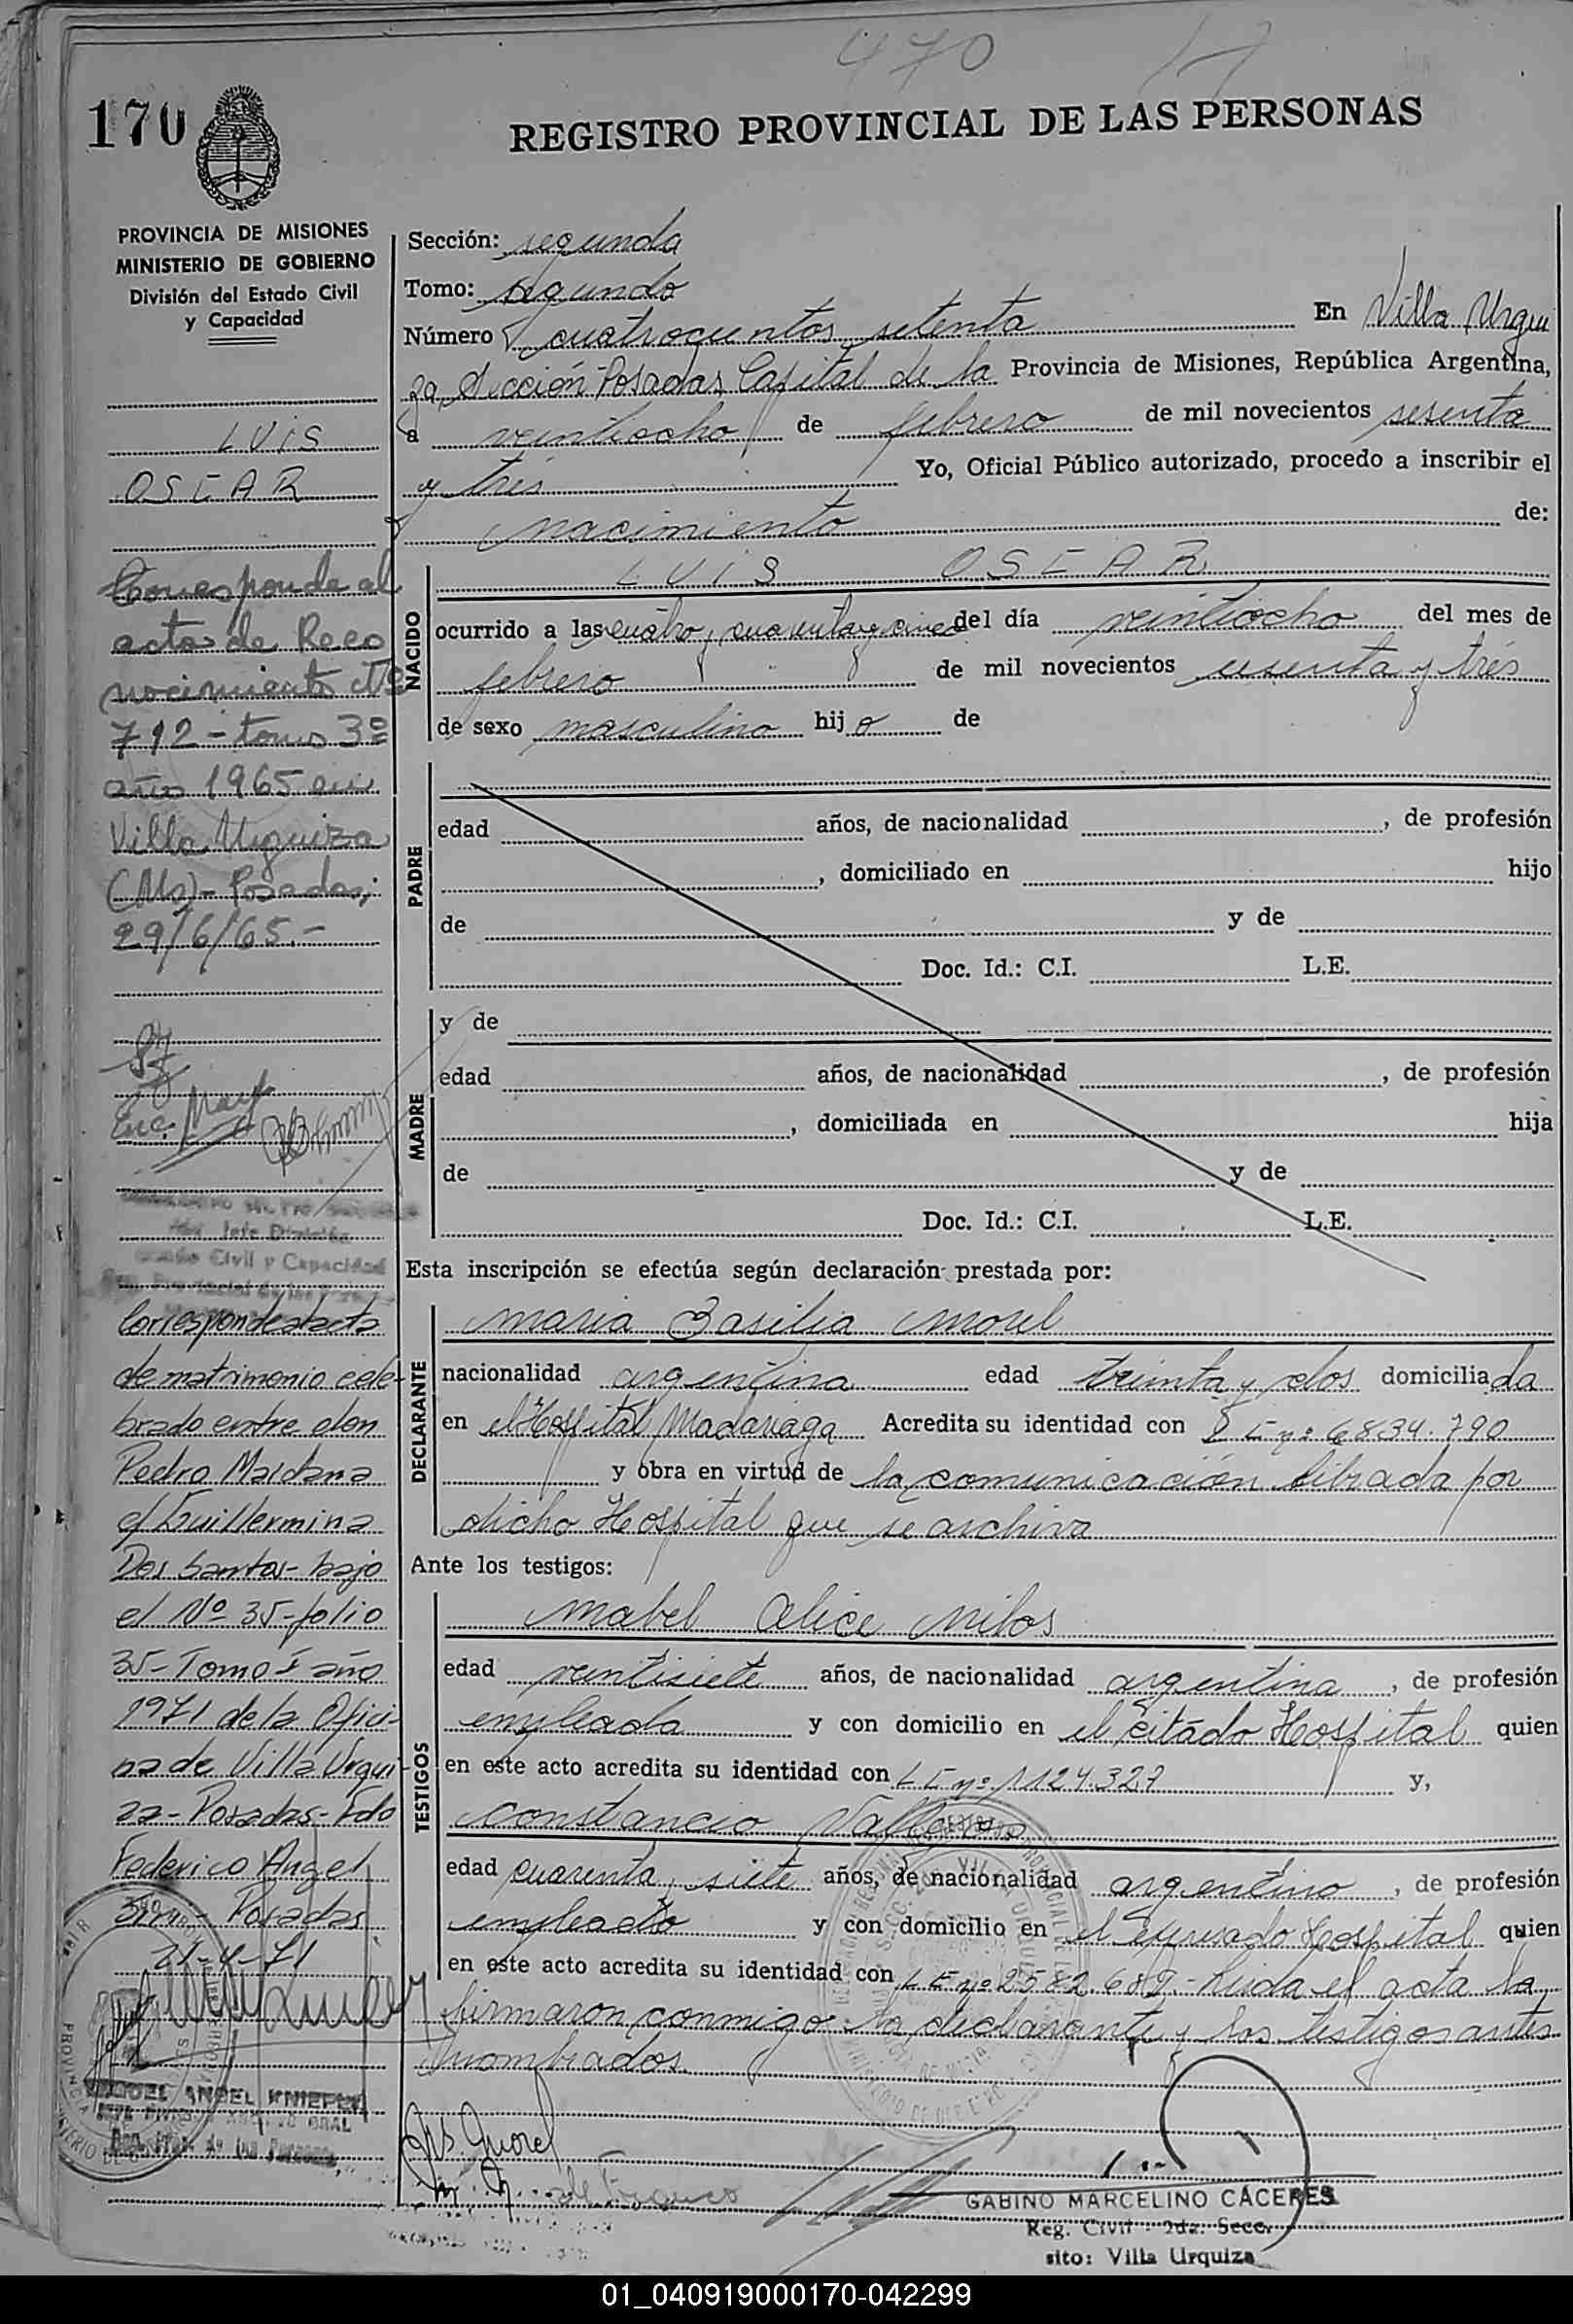 470
170
REGISTRO PROVINCIAL DE LAS PERSONAS
PROVINCIA DE MISIONES
MINISTERIO DE GOBIERNO
División del Estado Civil
y Capacidad
LUIS
OSCAR
Corresponde al
acta de Reco
nocimiento Nº
712 - tomo 3º
año 1965 en
Villa Urquiza
(Ms) - Posadas,
29/6/65.-
Enc.
Jefe División
Civil y Capacidad
Corresponde al acta
de matrimonio cele-
brado entre don
Pedro Maidana
c/ Guillermina
Dos Santos - bajo
el Nº 35 - folio
35 - Tomo I año
1971 de la Ofici-
na de Villa Urqui-
za - Posadas - Fdo
Federico Angel
Posadas
21-4-71
ANGEL KNIEPER
Sección: segunda
Tomo: segundo
Número cuatrocientos setenta En Villa Urqui
za, Sección Posadas, Capital de la Provincia de Misiones, República Argentina,
a veintiocho de febrero de mil novecientos sesenta
y tres Yo, Oficial Público autorizado, procedo a inscribir el
nacimiento de:
NACIDO
LUIS OSCAR
ocurrido a las cuatro y cuarenta y cinco del día veintiocho del mes de
febrero de mil novecientos sesenta y tres
de sexo masculino hijo de
PADRE
edad años, de nacionalidad , de profesión
, domiciliado en hijo
de y de
Doc. Id.: C.I. L.E.
MADRE
y de
edad años, de nacionalidad , de profesión
, domiciliada en hija
de y de
Doc. Id.: C.I. L.E.
Esta inscripción se efectúa según declaración prestada por:
DECLARANTE
Maria Basilia Morel
nacionalidad argentina edad treinta y dos domiciliada
en el Hospital Madariaga Acredita su identidad con nº 6834.790
y obra en virtud de la comunicación librada por
dicho Hospital que se archiva
Ante los testigos:
TESTIGOS
Mabel Alice Milos
edad veintisiete años, de nacionalidad argentina, de profesión
empleada y con domicilio en el citado Hospital quien
en este acto acredita su identidad con L E nº 1124.327 y,
Constancio Vallejos
edad cuarenta y siete años, de nacionalidad argentino, de profesión
empleado y con domicilio en el expresado Hospital quien
en este acto acredita su identidad con L E nº 2582.689 - Leida el acta la
firmaron conmigo la declarante y los testigos antes
nombrados.
Morel
GABINO MARCELINO CACERES
Reg. Civil - 2da. Secc.
sito: Villa Urquiza
01_040919000170-042299